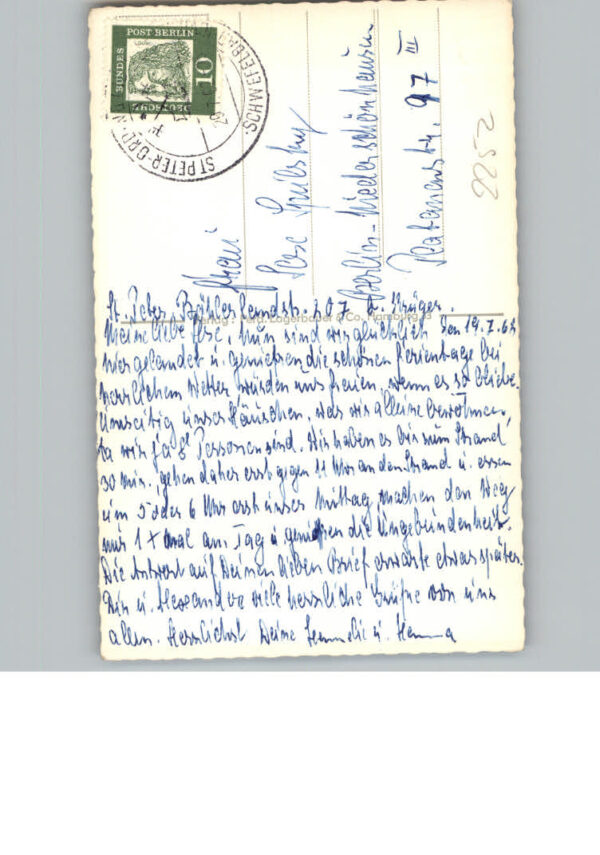 DEUTSCHE
BUNDES
POST BERLIN
10
ST. PETER-ORDING
Frau
Ilse
Berlin-Niederschönhausen
97 III
2252
St. Peter, Böhler Landstr. 207 b. Krüger.
Verlag Ferd. Lagerbauer & Co. Hamburg 23
den 19.7.62
Meine liebe Ilse, nun sind wir glücklich
hier gelandet u. genießen die schönen Ferientage bei
herrlichem Wetter, würden uns freuen, wenn es so bliebe.
Umseitig unser Häuschen, das wir alleine bewohnen,
da wir ja 8 Personen sind. Wir haben es bis zum Strand
30 Min., gehen daher erst gegen 11 Uhr an den Strand u. essen
um 5 oder 6 Uhr erst unser Mittag, machen den Weg
nur 1 x mal am Tag u. genießen die Ungebundenheit.
Die Antwort auf Deinen lieben Brief erwarte etwas später.
Dir u. Alexander viele herzliche Grüße von uns
allen. Herzlichst Deine u.